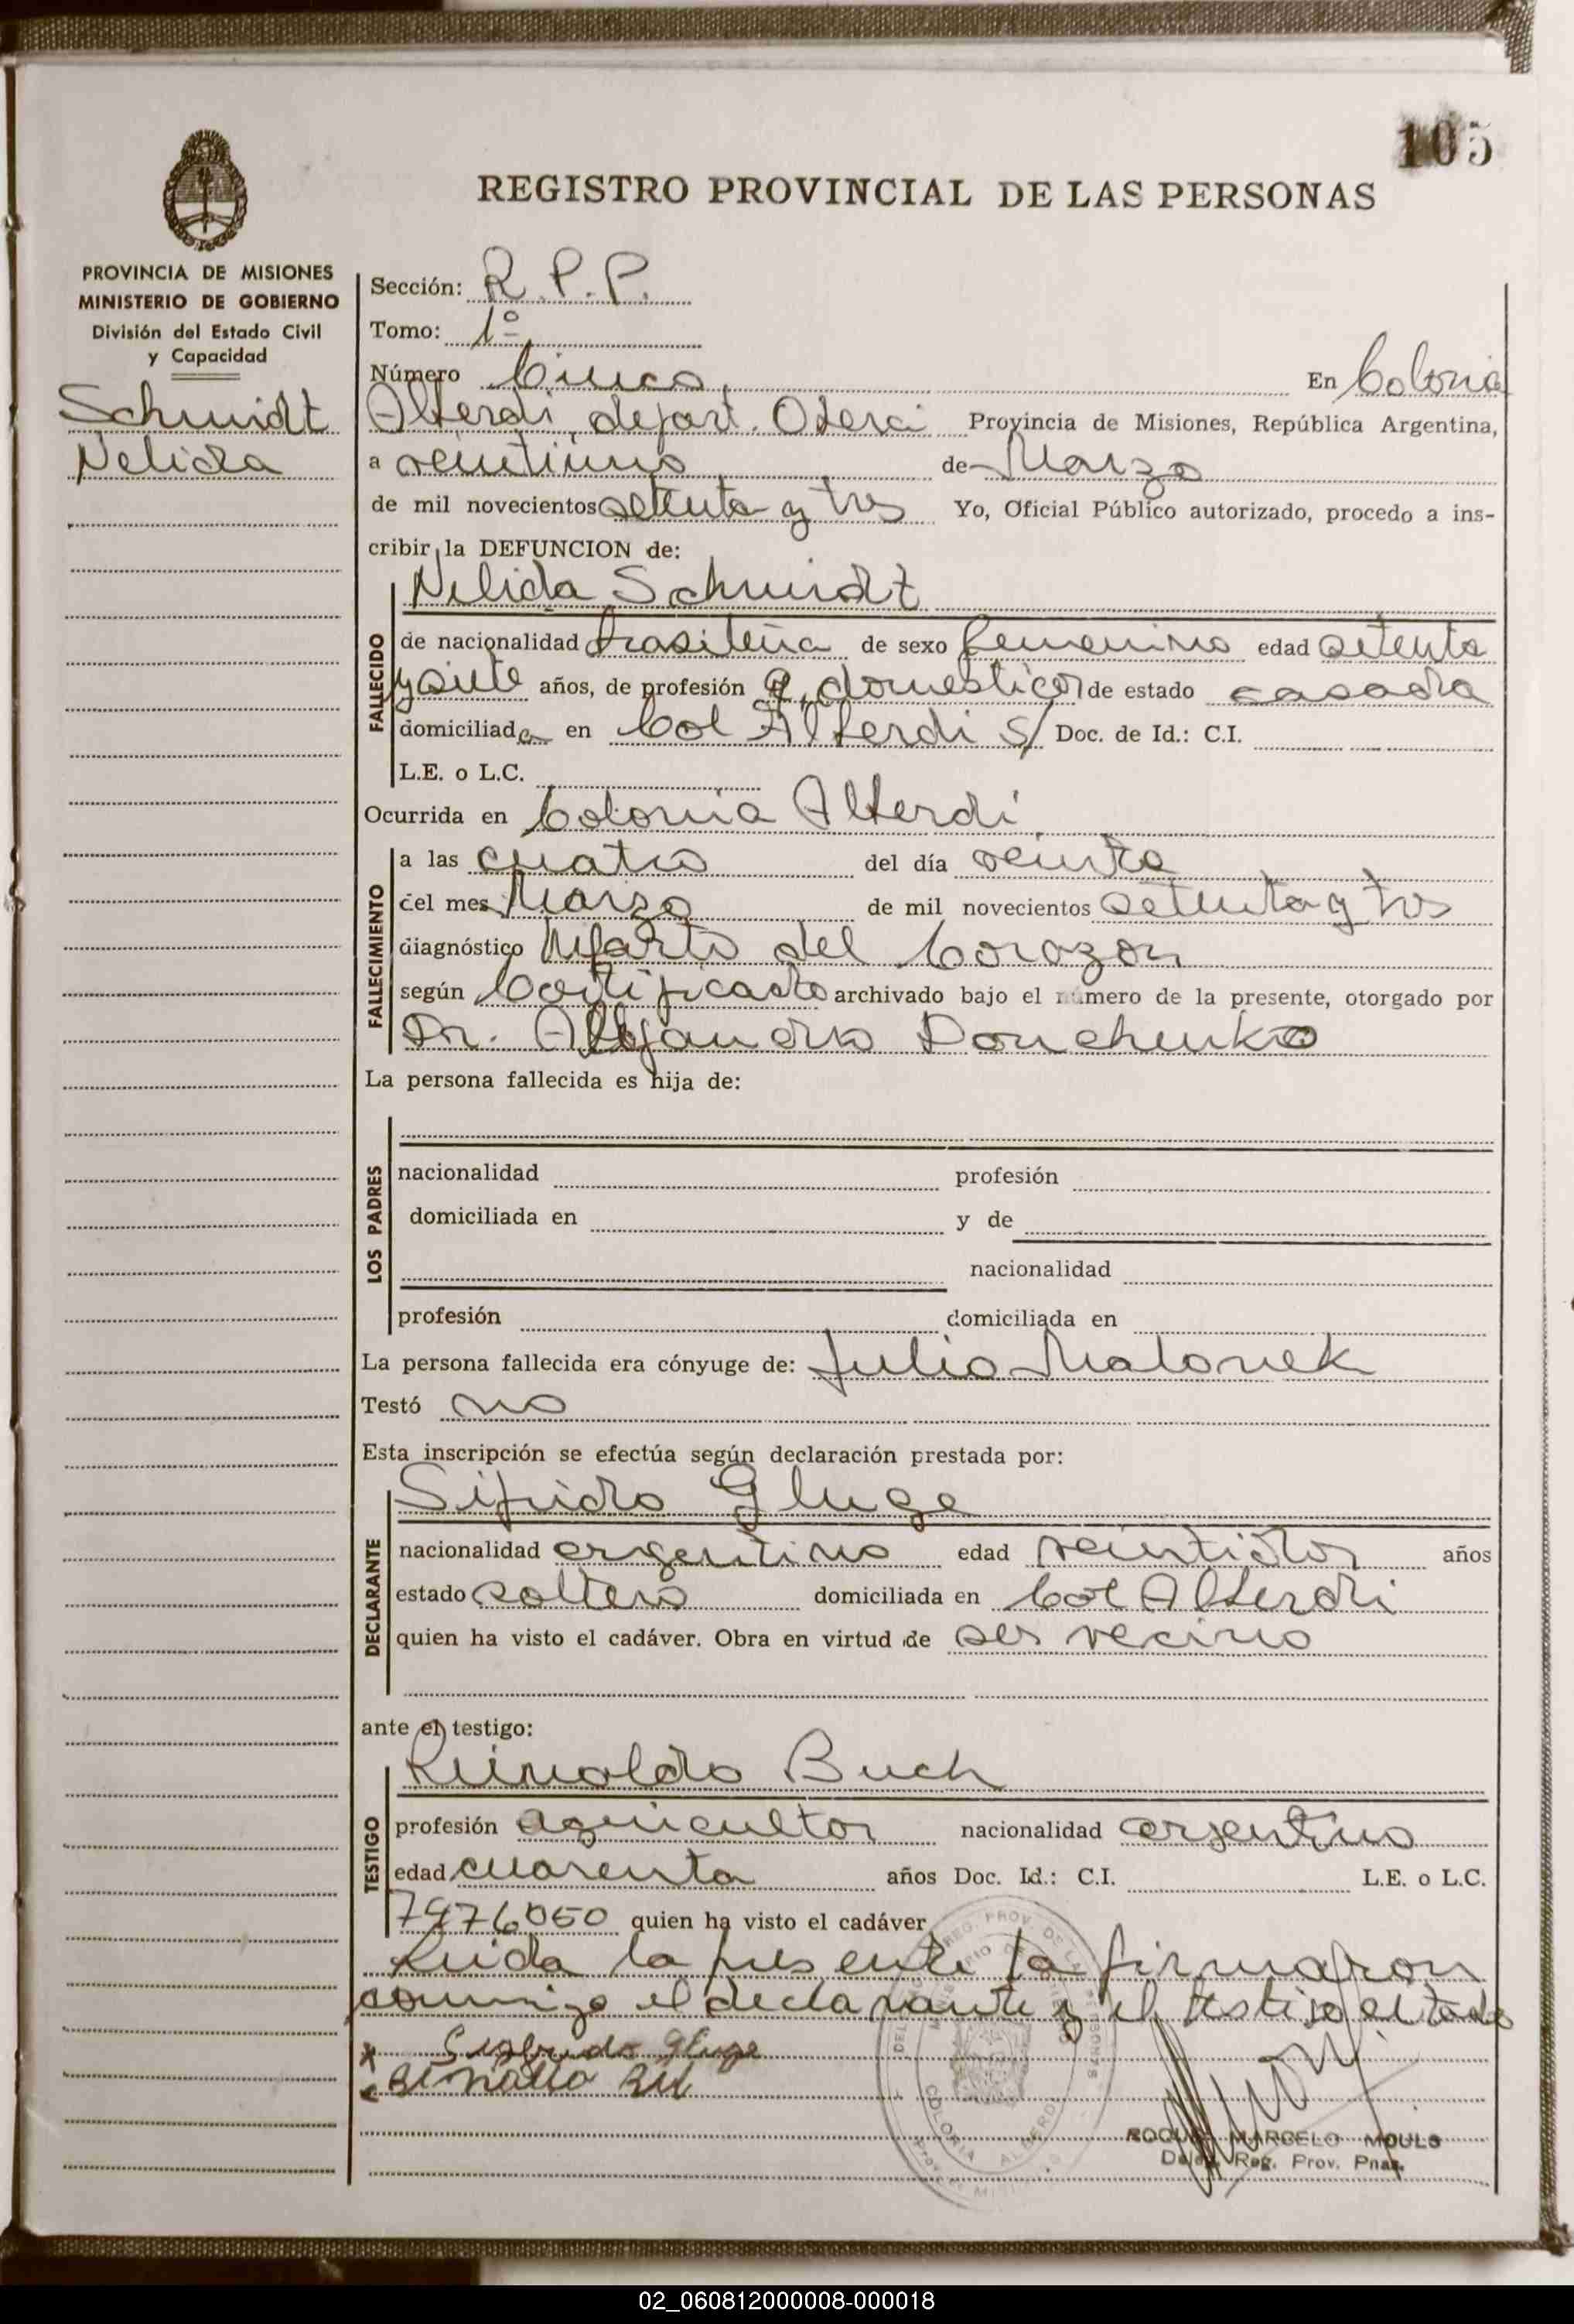 105
REGISTRO PROVINCIAL DE LAS PERSONAS
PROVINCIA DE MISIONES
MINISTERIO DE GOBIERNO
División del Estado Civil
y Capacidad
Schmidt
Nelida
Sección: R.P.P.
Tomo: 1º
Número Cinco En Colonia
Alberdi, depart. Oberá Provincia de Misiones, República Argentina,
a veintiuno de Marzo
de mil novecientos setenta y tres Yo, Oficial Público autorizado, procedo a ins-
cribir la DEFUNCION de:
Nelida Schmidt
FALLECIDO
de nacionalidad brasileña de sexo femenino edad setenta
y siete años, de profesión q. domesticos de estado casada
domiciliada en Col Alberdi s/ Doc. de Id.: C.I.
L.E. o L.C.
Ocurrida en Colonia Alberdi
FALLECIMIENTO
a las cuatro del día veinte
del mes Marzo de mil novecientos setenta y tres
diagnóstico Infarto del Corazon
según Certificado archivado bajo el número de la presente, otorgado por
Dr. Alejandro Donchenko
La persona fallecida es hija de:
LOS PADRES
nacionalidad profesión
domiciliada en y de
nacionalidad
profesión domiciliada en
La persona fallecida era cónyuge de: Julio Malonek
Testó no
Esta inscripción se efectúa según declaración prestada por:
DECLARANTE
Sifrido Gluge
nacionalidad argentino edad años
estado soltero domiciliada en Col Alberdi
quien ha visto el cadáver. Obra en virtud de ser vecino
ante el testigo:
TESTIGO
Reinoldo Buch
profesión agricultor nacionalidad argentino
edad cuarenta años Doc. Id.: C.I. L.E. o L.C.
7476050 quien ha visto el cadáver
Leida la presente la firmaron
comigo el declarante y el testigo citado
x Gluge
COLONIA ALBERDI
ROQUE MARCELO MOULO
Deleg. Reg. Prov. Pnas.
02_060812000008-000018